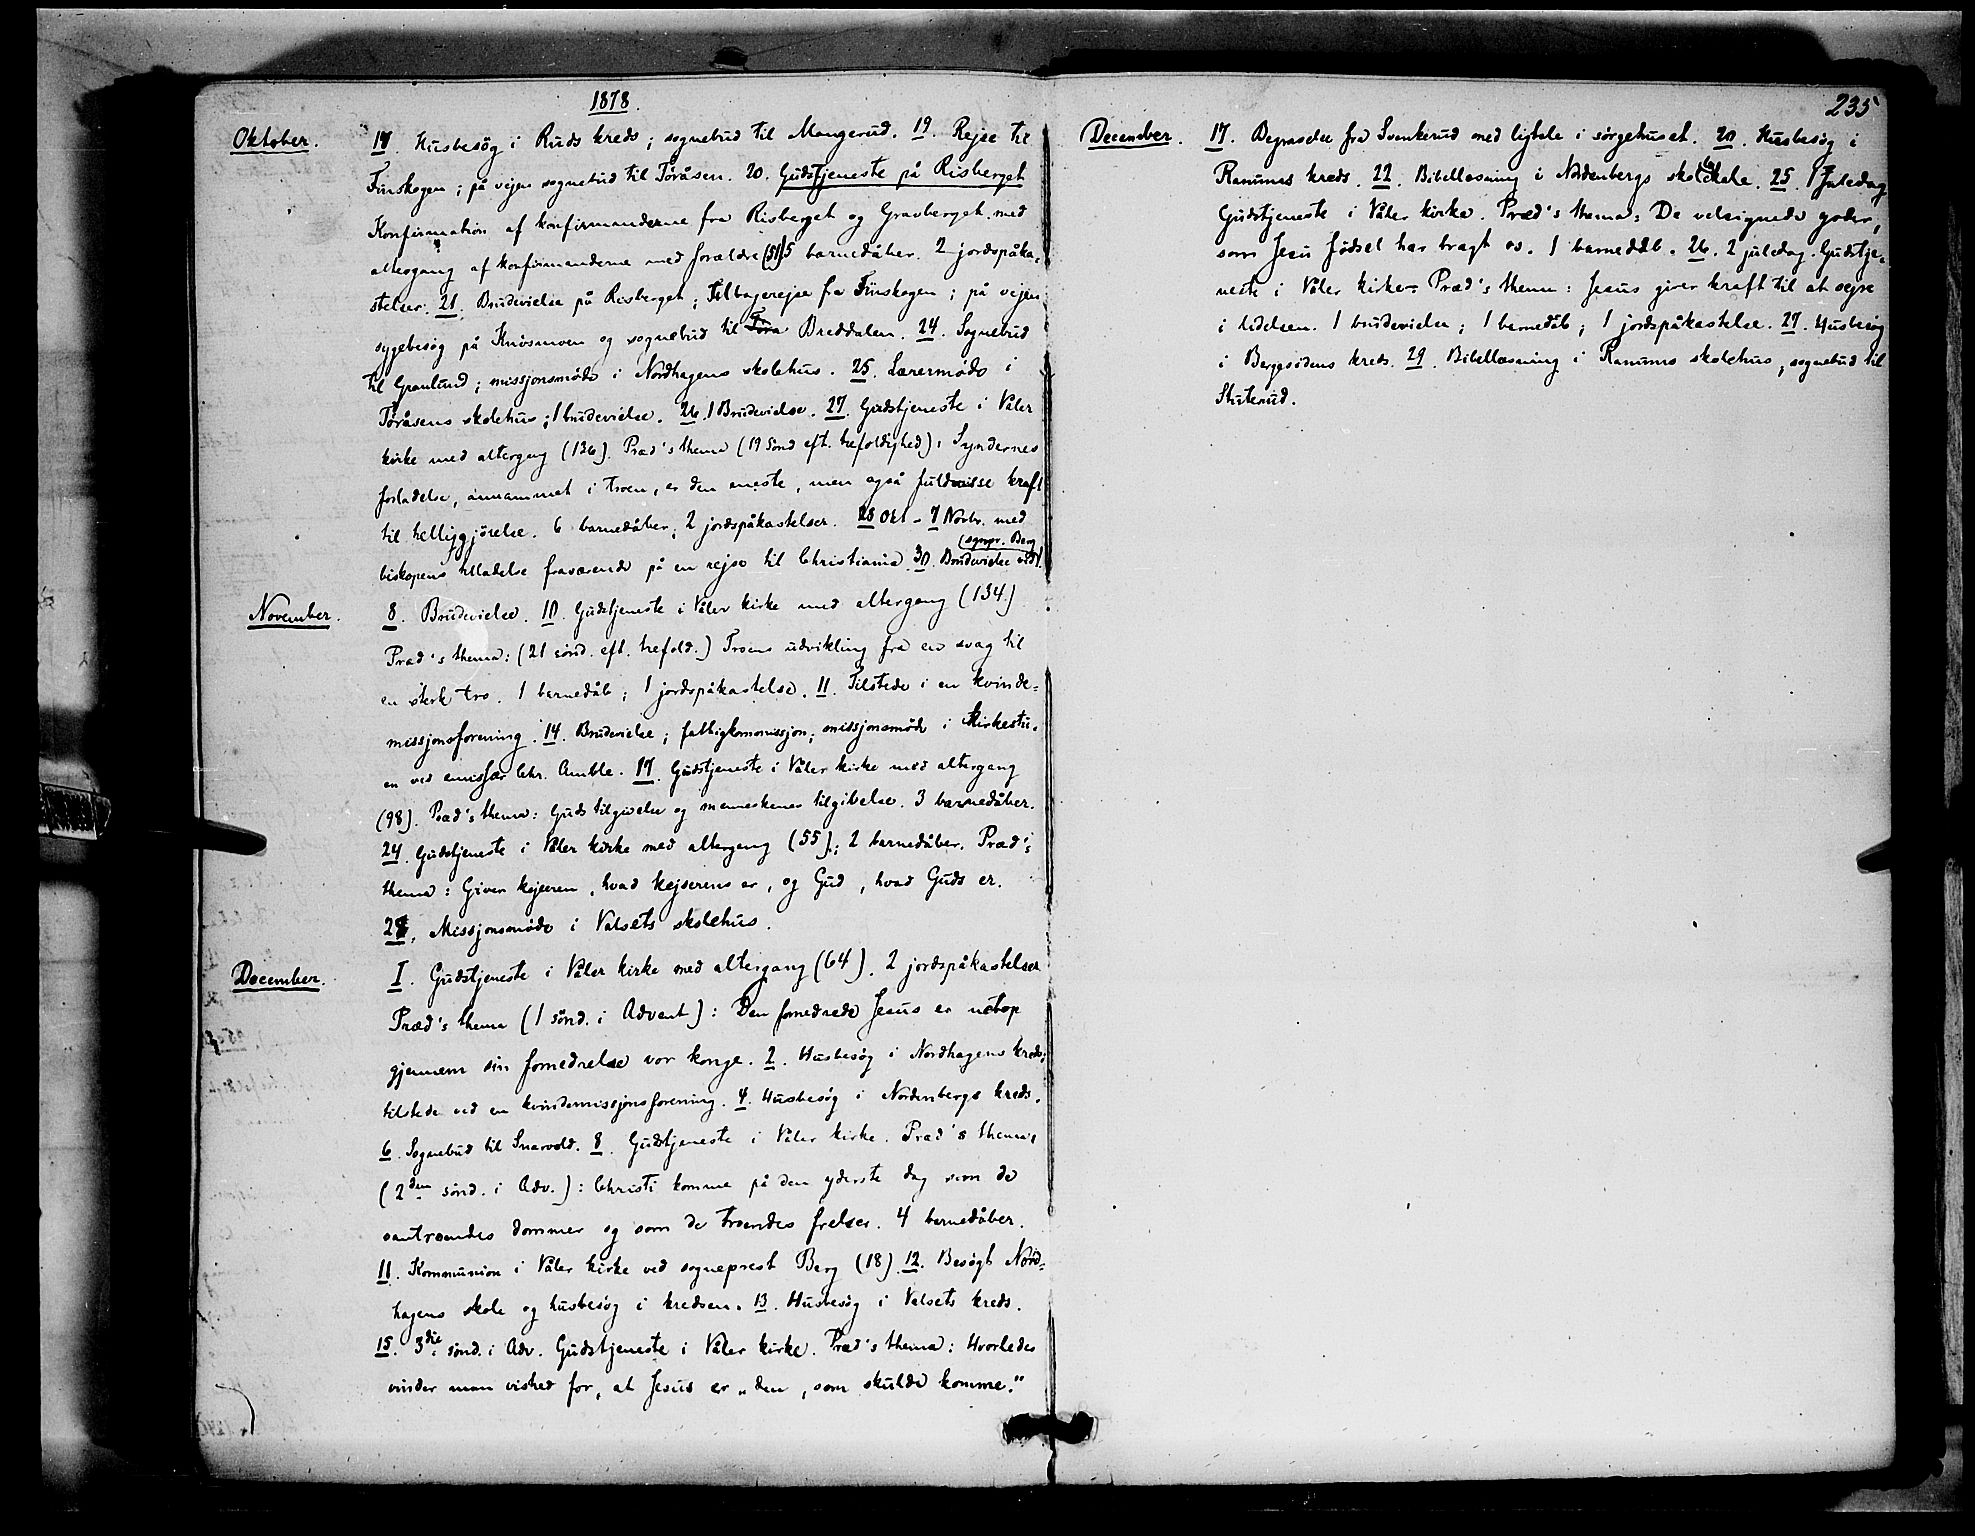 1878.
Oktober. 17. Husbesøg i Ruds kreds; sognebud til Mangerud. 19. Rejse til
Finskogen; på vejen sognebud til Toråsen. 20. Gudstjeneste på Risberget
Konfirmation af konfirmanderne fra Risberget og Gravberget med
altergang af konfirmanderne med forældre (51) 5 barnedåber. 2 jordspåka-
stelser. 21. Brudevielse på Risberget; Tilbagerejse fra Finskogen; på vejen
sygebesøg på Knosmoen og sognebud til Breddalen. 24. Sognebud
til Granlund; missjonsmøde i Nordhagens skolehus. 25. Lærermøde i
Toråsens skolehus; 1 brudevielse. 26. 1 Brudevielse. 27. Gudstjeneste i Våler
kirke med altergang (126). Præd's thema (19 sønd eft. trefoldighed): Syndernes
forladelse, annammet i troen, er den eneste, men også fuldvisse kraft
til helliggjørelse. 6 barnedåber; 2 jordspåkastelser. 28 Okt - 7 Novbr. med
biskopens tilladelse fraværende på en rejse til Christiania. 30. Brudevielse ved
(sognpr. Berg)
November. 8. Brudevielse. 10. Gudstjeneste i Våler kirke med altergang (134)
Præd's thema: (21 sønd. eft. trefold.) Troens udvikling fra en svag til
en sterk tro. 1 barnedåb; 1 jordspåkastelse. 11. Tilstede i en kvinde-
missjonsforening. 14. Brudevielse; fattigkommissjon; missjonsmøde i Kirkestu-
en ved emissær Chr. Amble. 17. Gudstjeneste i Våler kirke med altergang
(98). Præd's thema: Guds tilgivelse og menneskenes tilgivelse. 3 barnedåber.
24. Gudstjeneste i Våler kirke med altergang (55); 2 barnedåber. Præd's
thema: Giver kejseren, hvad kejserens er, og Gud, hvad Guds er.
28. Missjonsmøde i Valsets skolehus.
December. 1. Gudstjeneste i Våler kirke med altergang (64). 2 jordspåkastelser
Præd's thema (1 sønd. i Advent): Den fornedrede Jesus er netop
gjennem sin fornedrelse vor konge. 2. Husbesøg i Nordhagens kreds;
tilstede ved en kvindemissjonsforening. 4. Husbesøg i Nordenbergs kreds.
6. Sognebud til Snarvold. 8. Gudstjeneste i Våler kirke. Præd's thema:
(2den sønd. i Adv.): Christi komme på den yderste dag som de
vantroendes dommer og som de troendes frelser. 4 barnedåber.
11. Kommunion i Våler kirke ved sogneprest Berg (18). 12. Besøgt Nord-
hagens skole og husbesøg i kredsen. 13. Husbesøg i Valsets kreds.
15. 3die sønd. i Adv. Gudstjeneste i Våler kirke. Præd's thema: Hvorledes
vinder man vished for, at Jesus er „den, som skulde komme."
235
December. 17. Begravelse fra Svenkerud med ligtale i sørgehuset. 20. Husbesøg i
Ranums kreds. 22. Bibellæsning i Nordenbergs skolelokale. 25. 1 Juledag
Gudstjeneste i Våler kirke. Præd's thema: De velsignede goder,
som Jesu fødsel har bragt os. 1 barnedåb. 26. 2 juledag. Gudstje-
neste i Våler kirke. Præd's thema: Jesus giver kraft til at sejre
i lidelsen. 1 brudevielse; 1 barnedåb; 1 jordspåkastelse. 27. Husbesøg
i Bergesidens kreds. 29. Bibellæsning i Ranums skolehus, sognebud til
Stuterud.